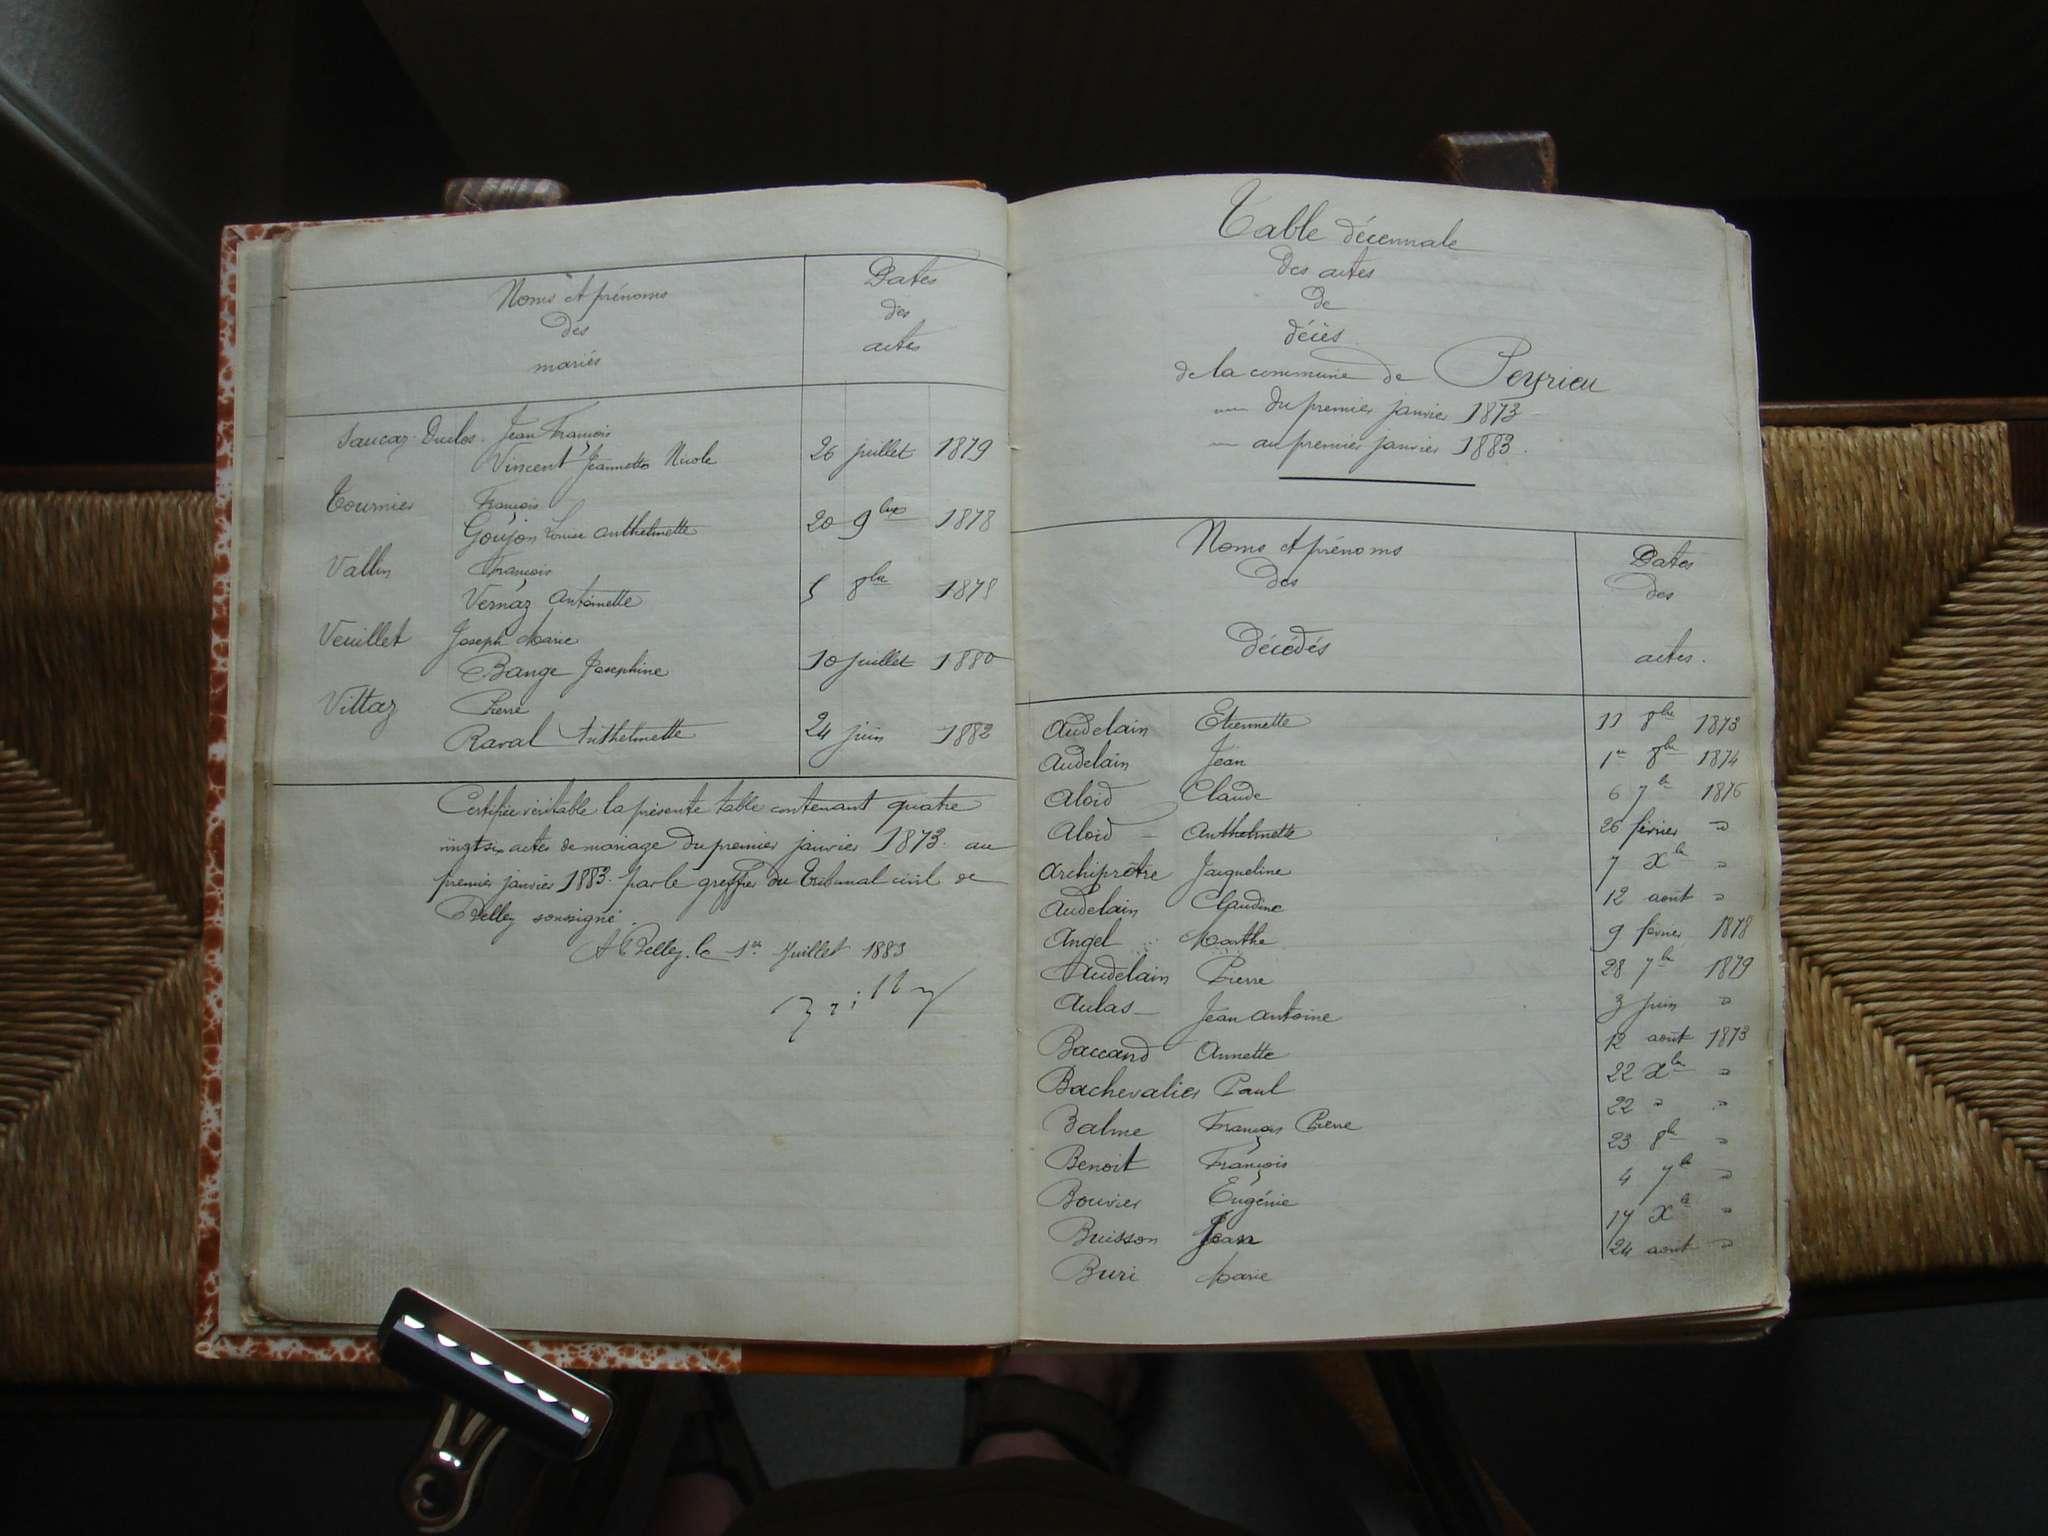 Noms et prénoms
des
mariés
Dates
des
actes
Jean François
Vincent Jeannette Nicole 26 juillet 1879
Tournier François
Goujon Louise Anthelmette 20 9bre 1878
Vallin François
Vernaz Antoinette 5 8bre 1878
Veuillet Joseph Marie
Bange Josephine 10 juillet 1880
Vittaz Pierre
Raval Anthelmette 24 juin 1882
Certifiée véritable la présente table contenant quatre
vingt six actes de mariage du premier janvier 1873 au
premier janvier 1883 par le greffier du Tribunal civil de
Belley soussigné.
A Belley, le 1er Juillet 1883
Table décennale
des actes
de
décès
de la commune de Peyrieu
du premier janvier 1873
au premier janvier 1883.
Noms et prénoms
des
décédés
Dates
des
actes.
Audelain Etiennette 11 8bre 1873
Audelain Jean 1er 8bre 1874
Aloid Claude 6 7bre 1876
Aloid - Anthelmette 26 février "
Archiprêtre Jacqueline 7 Xbre "
Audelain Claudine 12 août "
Angel Marthe 9 février 1878
Audelain Pierre 28 7bre 1879
Aulas - Jean Antoine 3 juin "
Baccand Annette 12 août 1873
Bachevalier Paul 22 Xbre "
Balme François Pierre 22 " "
Benoit François 23 8bre "
Bouvier Eugénie 4 7bre "
Buisson Jean 17 Xbre "
Buri Marie 24 août "